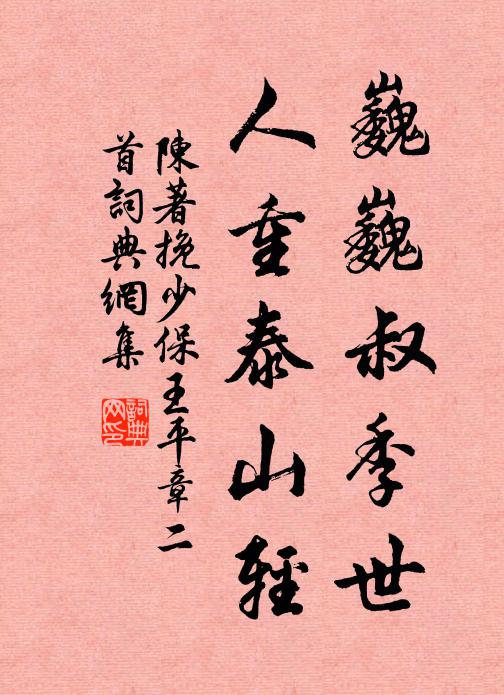 巍巍叔季世
人重泰山輕
陳著挽少保王平章二
首詞典網集
詞典
网印